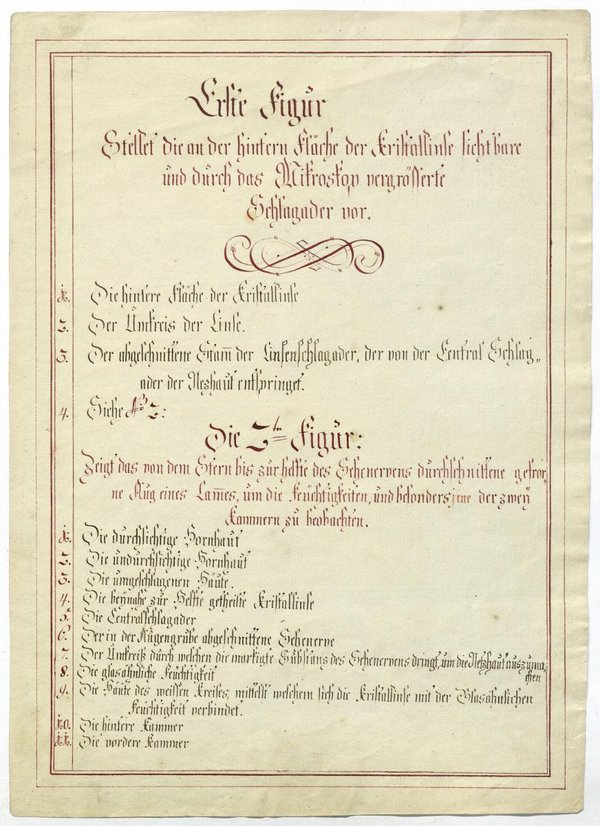 Erste Figur
Stellet die an der hintern Fläche der Kristallinse sichtbare
und durch das Mikroskop vergrösserte
Schlagader vor.
1. Die hintere Fläche der Kristallinse
2. Der Umkreis der Linse.
3. Der abgeschnittene Stam̅ der Linsenschlagader, der von der Central Schlag„
ader der Nezhaut entspringet.
4. Siehe No 2:
Die 2te Figur:
Zeigt das von dem Stern bis zur helfte des Sehenervens durchschnittene gefror„
ne Aug eines Lam̅es, um die Feuchtigkeiten, und besonders jene der zwey
Kammern zu beobachten.
1. Die durchsichtige Hornhaut
2. Die undurchsichtige Hornhaut
3. Die umgeschlagenen Häute.
4. Die beynahe zur Helfte getheilte Kristallinse
5. Die Centralschlagader
6. Der in der Augengrube abgeschnittene Sehenerve
7. Der Umkreiß durch welchen die markigte Substans des Sehenervens dringt, um die Netzhaut auszuma„
chen
8. Die glasähnliche Feuchtigkeit
9. Die Häute des weissen Kreises, mittelst welchem sich die Kristallinse mit der Glasähnlichen
Feuchtigkeit verbindet.
10. Die hintere Kammer
11. Die vordere Kammer